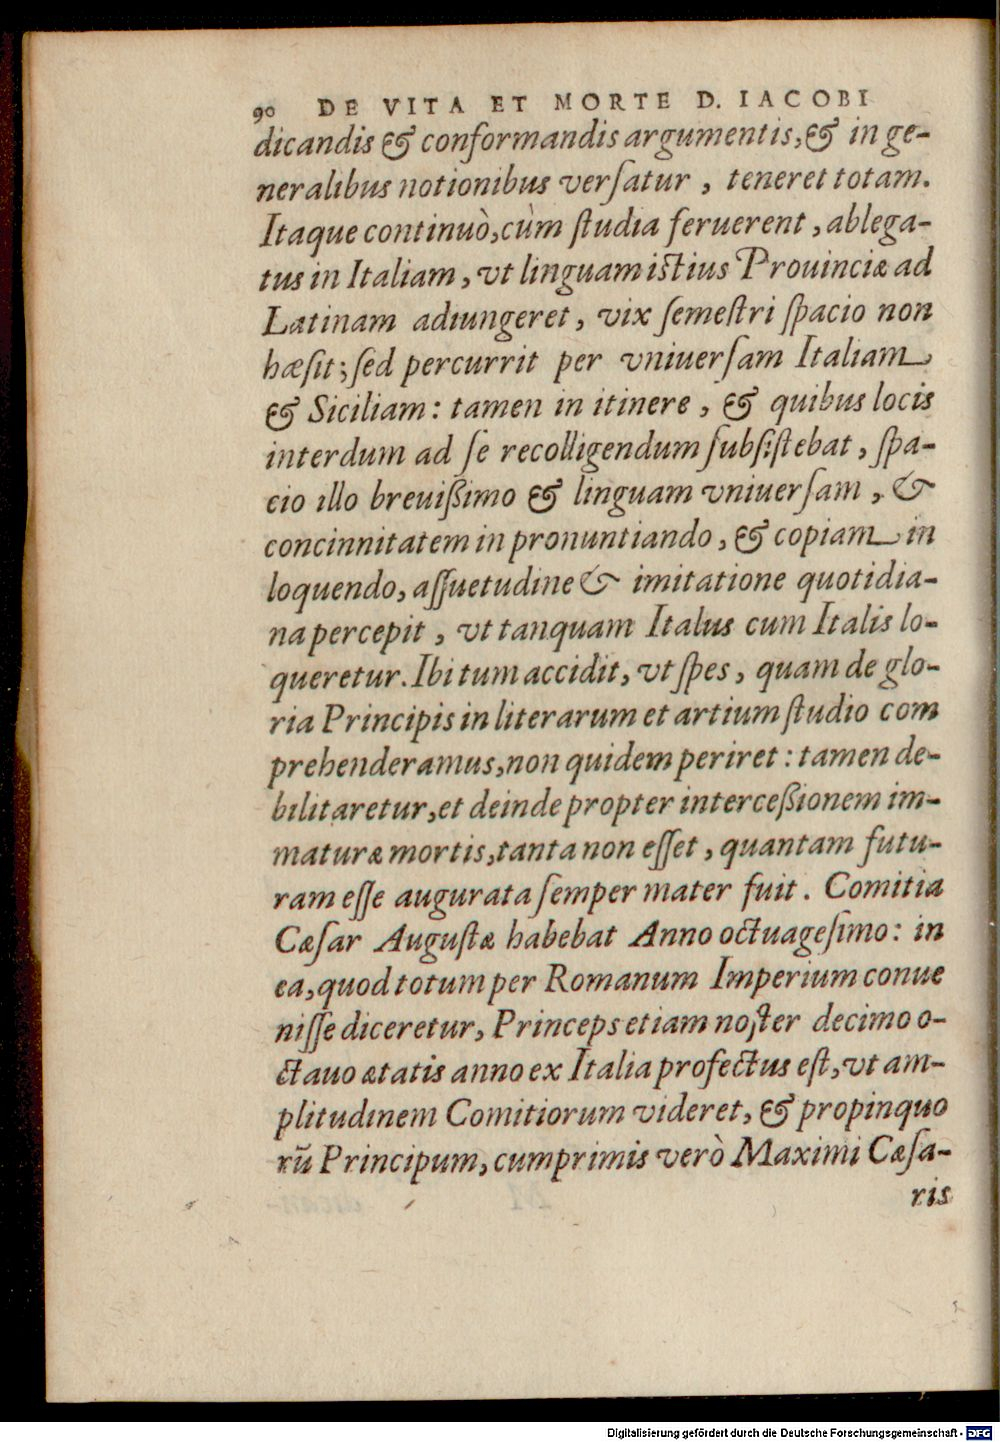 90 DE VITA ET MORTE D. IACOBI
dicandis & conformandis argumentis, & in ge-
neralibus notionibus verſatur, teneret totam.
Itaque continuò, cùm ſtudia feruerent, ablega-
tus in Italiam, vt linguam iſtius Prouinciæ ad
Latinam adiungeret, vix ſemeſtri ſpacio non
hæſit; ſed percurrit per vniuerſam Italiam
& Siciliam: tamen in itinere, & quibus locis
interdum ad ſe recolligendum ſubſiſtebat, ſpa-
cio illo breuißimo & linguam vniuerſam, &
concinnitatem in pronuntiando, & copiam in
loquendo, aſſuetudine & imitatione quotidia-
na percepit, vt tanquam Italus cum Italis lo-
queretur. Ibi tum accidit, vt ſpes, quam de glo-
ria Principis in literarum et artium ſtudio com
prehenderamus, non quidem periret: tamen de-
bilitaretur, et deinde propter interceßionem im-
maturæ mortis, tanta non eſſet, quantam futu-
ram eſſe augurata ſemper mater fuit. Comitia
Cæſar Auguſtæ habebat Anno octuageſimo: in
ea, quod totum per Romanum Imperium conue
niſſe diceretur, Princeps etiam noſter decimo o-
ctauo ætatis anno ex Italia profectus eſt, vt am-
plitudinem Comitiorum videret, & propinquo
rũ Principum, cumprimis verò Maximi Cæſa-
ris
Digitalisierung gefördert durch die Deutsche Forschungsgemeinschaft - DFG